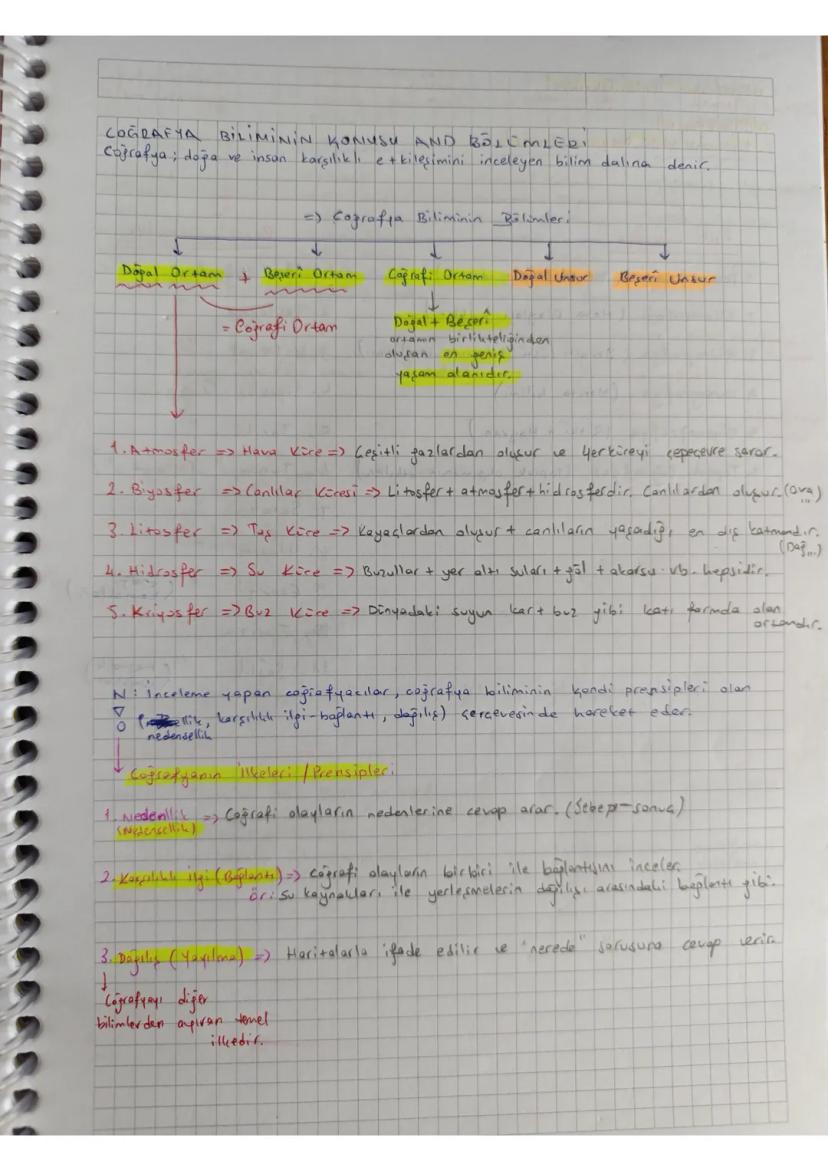 COĞRAFYA BİLİMİNİN KONUSU AND BÖLÜMLERİ
Coğrafya; doğa ve insan karşılıklı etkileşimini inceleyen bilim dalına denir.
=> Coğrafya Biliminin Bölümleri
Doğal Ortam + Beşeri Ortam Coğrafi Ortam Doğal Unsur Beşeri Unsur
= Coğrafi Ortam
Doğal + Beşerî
ortamın birlikteliğinden
oluşan en geniş
yaşam alanıdır.
1. Atmosfer => Hava Küre => Çeşitli gazlardan oluşur ve Yerküreyi çepeçevre sarar.
2. Biyosfer => Canlılar Küresi => Litosfer + atmosfer + hidrosferdir. Canlılardan oluşur. (Ova)
3. Litosfer => Taş Küre => Kayaçlardan oluşur + canlıların yaşadığı, en dış katmandır.
(Dağ...)
4. Hidrosfer => Su Küre => Buzullar + yer altı suları + göl + akarsu vb. hepsidir.
5. Kriyosfer => Buz Küre => Dünyadaki suyun kar + buz gibi katı formda olan
ortamdır.
N: İnceleme yapan coğrafyacılar, coğrafya biliminin kendi prensipleri olan
( karşılıklı ilgi-bağlantı, dağılış) çerçevesinde hareket eder.
nedensellik
Coğrafyanın İlkeleri / Prensipleri
1. Nedenllik => Coğrafi olayların nedenlerine cevap arar. (Sebep-sonuç)
(Nedensellik)
2. Karşılıklı ilgi (Bağlantı) => coğrafi olayların birbiri ile bağlantısını inceler.
ör: su kaynakları ile yerleşmelerin dağılışı arasındaki bağlantı gibi.
3. Dağılış (Yayılma) => Haritalarla ifade edilir ve "nerede" sorusuna cevap verir
Coğrafyayı diğer
bilimlerden ayıran temel
ilkedir.